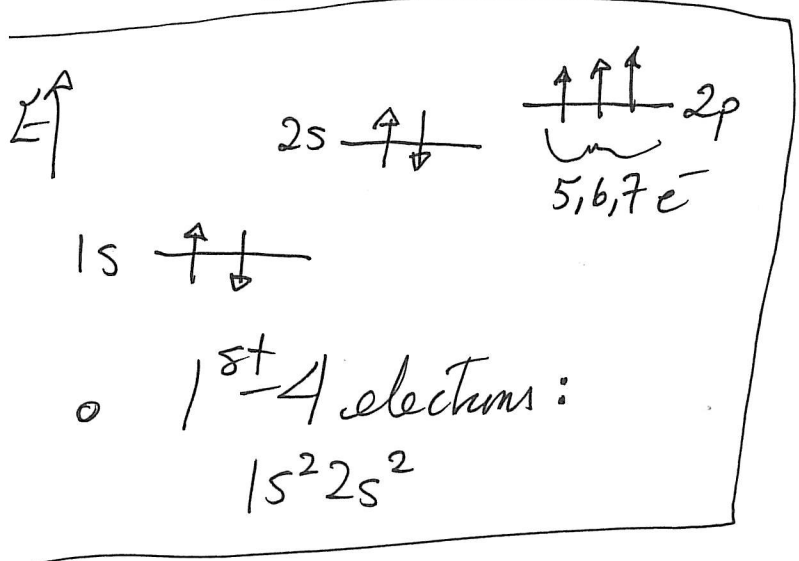 E
2s
2p
5,6,7 e⁻
1s
1st-4 electrons:
1s²2s²